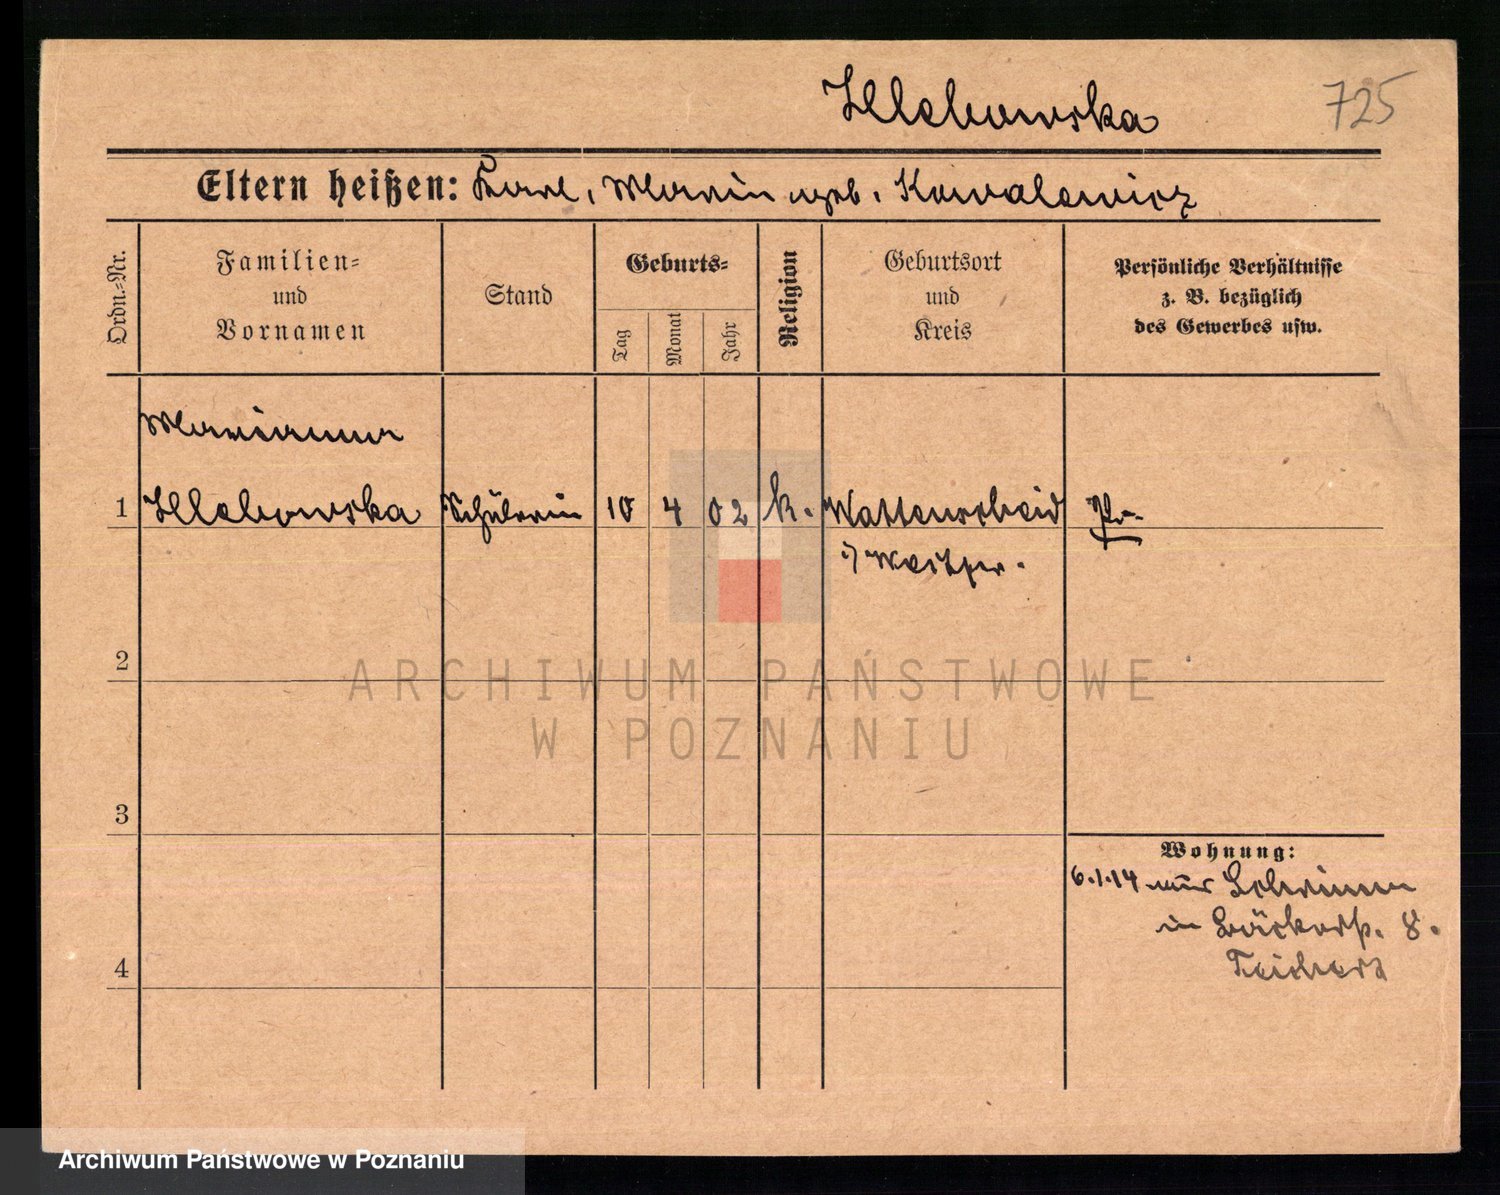 Illchowska
725
Eltern heißen: Karl, Marie geb. Kowalewicz
Ordn.-Nr.
Familien-
und
Vornamen
Stand
Geburts-
Tag
Monat
Jahr
Religion
Geburtsort
und
Kreis
Persönliche Verhältnisse
z. B. bezüglich
des Gewerbes usw.
Marianna
1 Schülerin 10 4 02 k. Wattenscheid Pr.
i/ Westf.
2
3
4
Wohnung:
6.1.14 aus Schrimm
in Bäckerstr. 8.
Teichert
ARCHIWUM PAŃSTWOWE
W POZNANIU
Archiwum Państwowe w Poznaniu